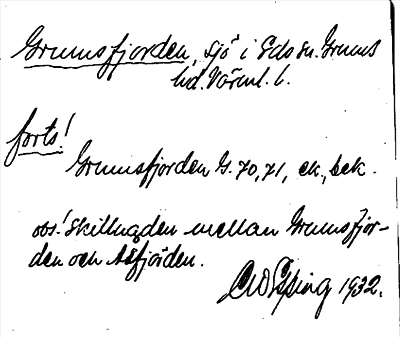 Grumsfjorden, sjö i Eds sn. Grums
hd. Värml. l.
forts!
Grumsfjorden G. 70, 71, ek., bek.
obs! skillnaden mellan Grumsfjor-
den och Åsfjorden.
1932.